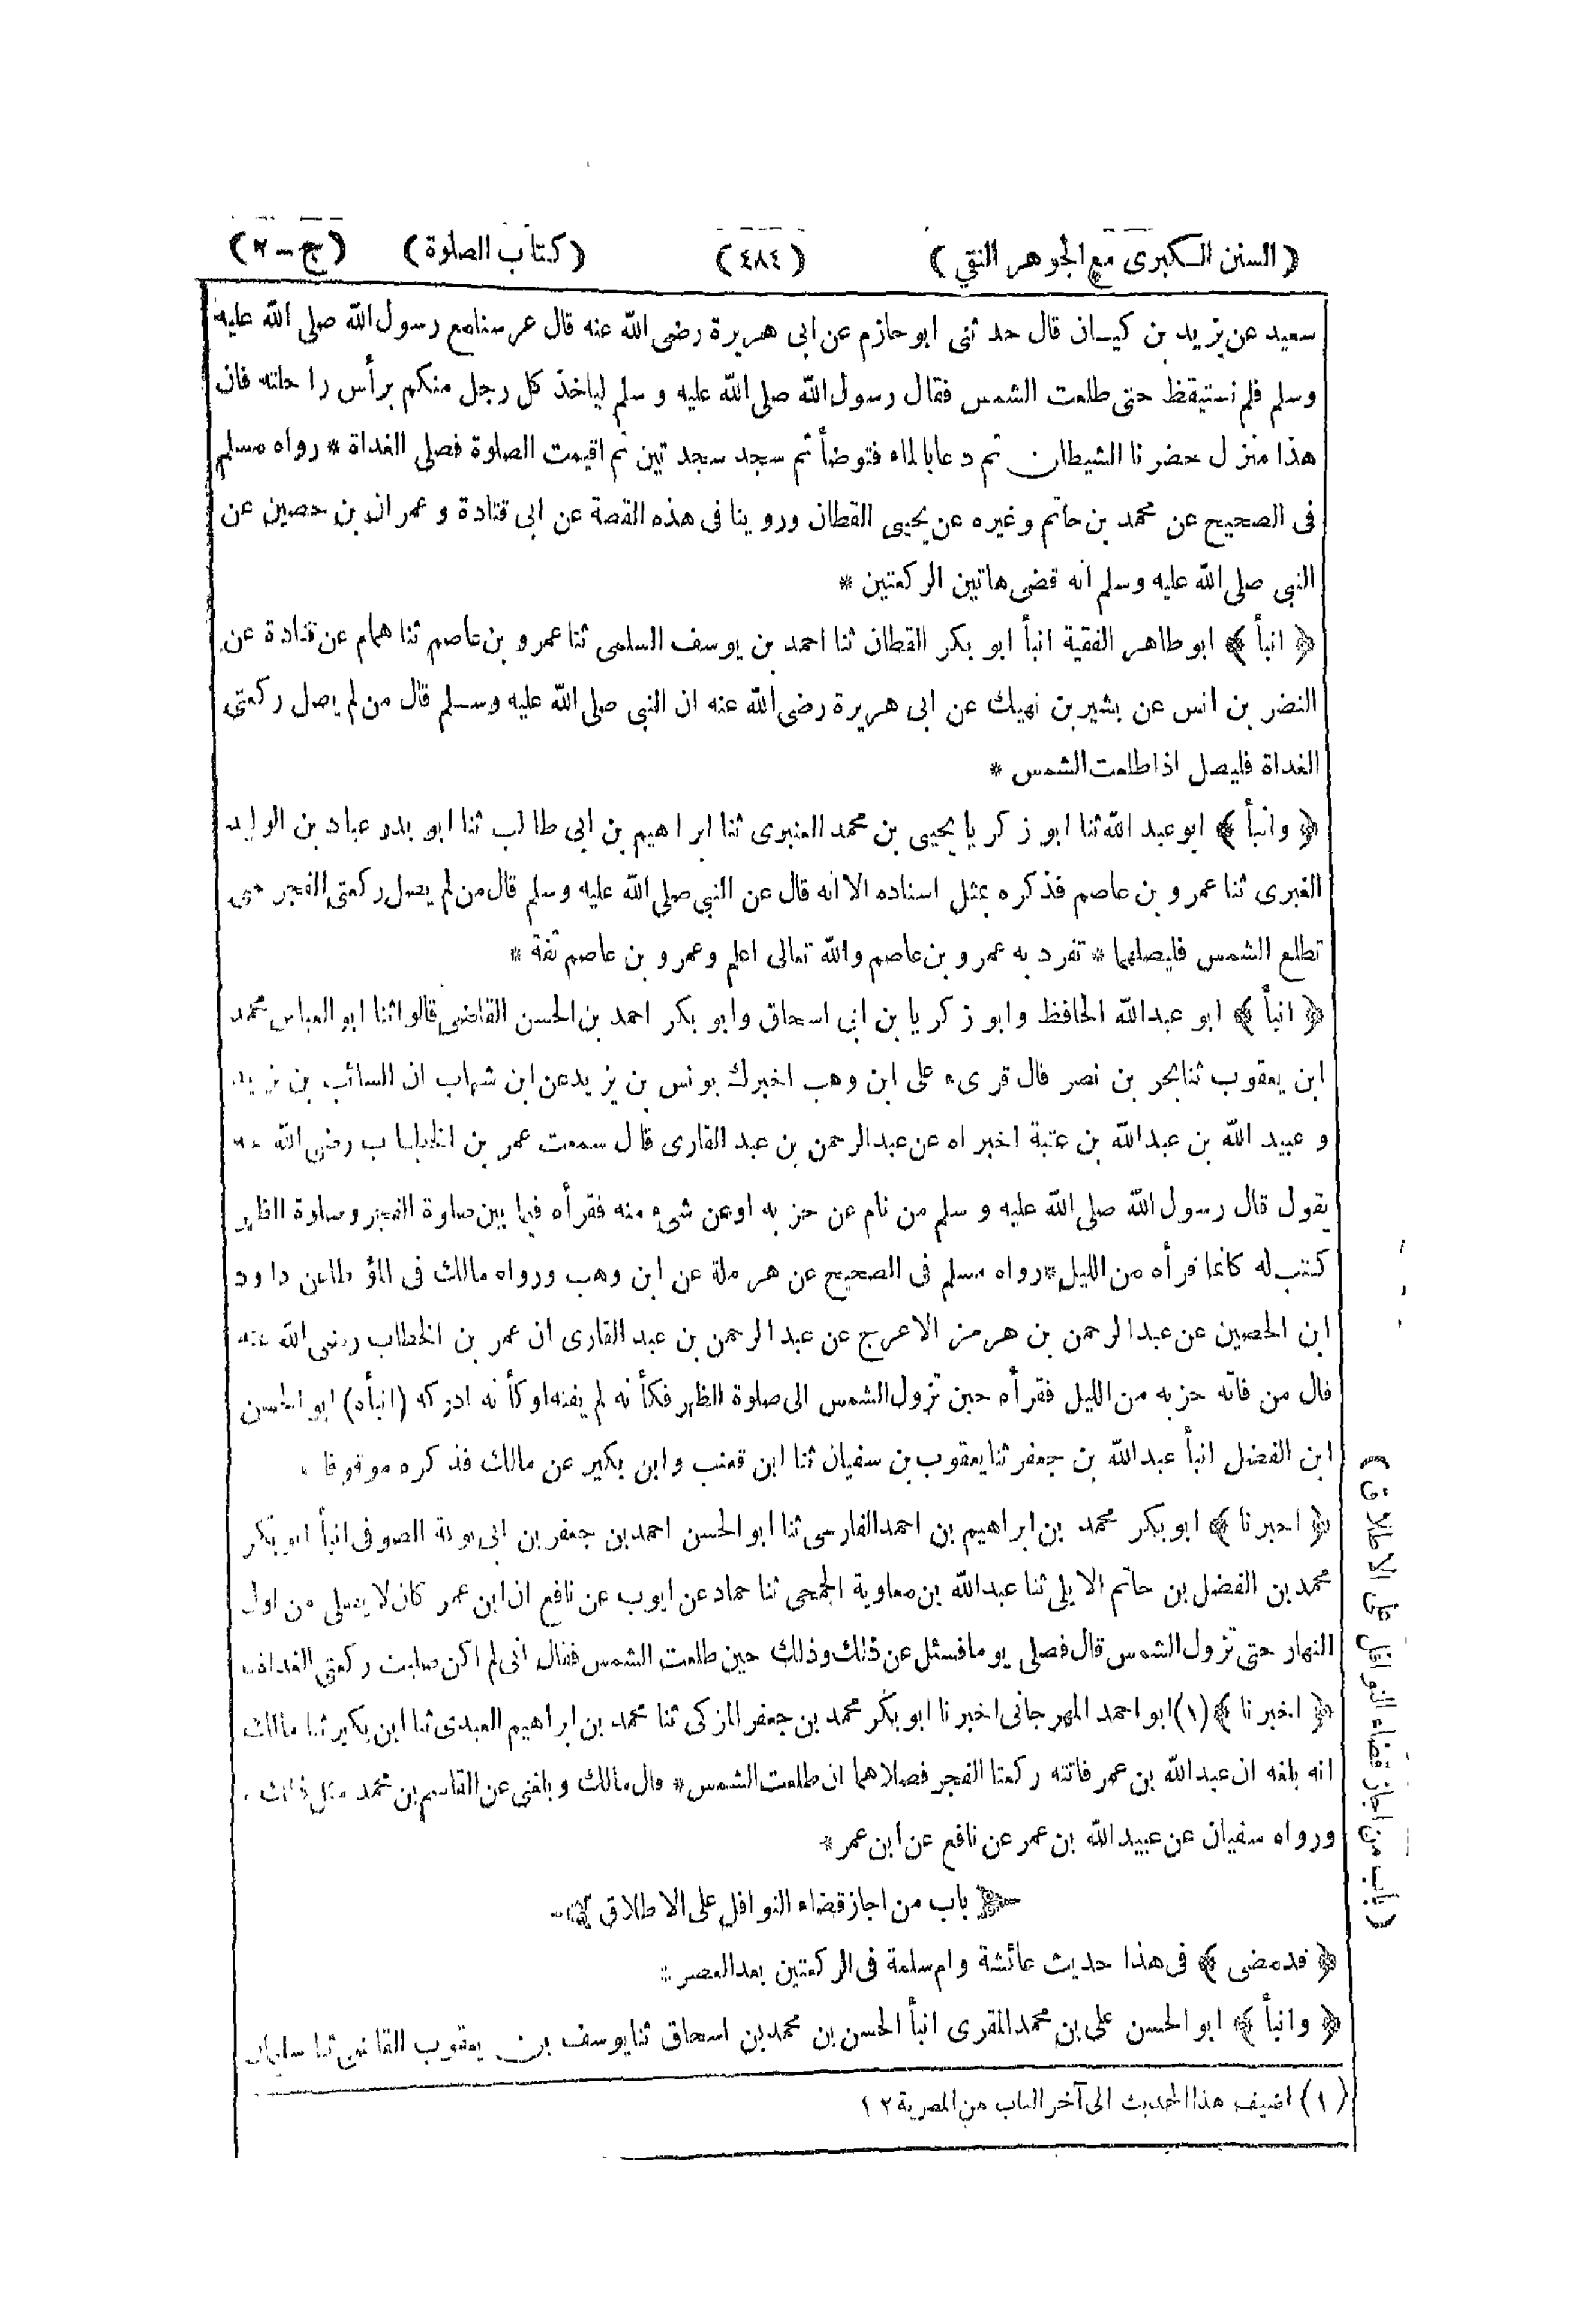 (السنن الكبرى مع الجوهر النقي) (٤٨٤) (كتاب الصلوة) (ج-٢)
سعيد عن يزيد بن كيسان قال حدثنى ابو حازم عن ابى هريرة رضى الله عنه قال عرسنا مع رسول الله صلى الله عليه
وسلم فلم نستيقظ حتى طلعت الشمس فقال رسول الله صلى الله عليه وسلم لياخذ كل رجل منكم برأس راحلته فان
هذا منزل حضرنا الشيطان ثم دعا بالماء فتوضأ ثم سجد سجدتين ثم اقيمت الصلوة فصلى الغداة * رواه مسلم
فى الصحيح عن محمد بن حاتم وغيره عن يحيى القطان وروينا فى هذه القصة عن ابى قتادة وعمران بن حصين عن
النبى صلى الله عليه وسلم انه قضى هاتين الركعتين *
﴿ انبأ ﴾ ابو طاهر الفقية انبأ ابو بكر القطان ثنا احمد بن يوسف السلمى ثنا عمرو بن عاصم ثنا همام عن قتادة عن
النضر بن انس عن بشير بن نهيك عن ابى هريرة رضى الله عنه ان النبى صلى الله عليه وسلم قال من لم يصل ركعتى
الغداة فليصل اذا طلعت الشمس *
﴿ وانبأ ﴾ ابو عبد الله ثنا ابو زكريا يحيى بن محمد العنبرى ثنا ابراهيم بن ابى طالب ثنا ابو بدر عباد بن الوليد
الغبرى ثنا عمرو بن عاصم فذكره بمثل اسناده الا انه قال عن النبى صلى الله عليه وسلم قال من لم يصل ركعتى الفجر حتى
تطلع الشمس فليصلهما * تفرد به عمرو بن عاصم والله تعالى اعلم وعمرو بن عاصم ثقة *
﴿ انبأ ﴾ ابو عبد الله الحافظ وابو زكريا بن ابى اسحاق وابو بكر احمد بن الحسن القاضى قالوا ثنا ابو العباس محمد
ابن يعقوب ثنا بحر بن نصر قال قرىء على ابن وهب اخبرك يونس بن يزيد عن ابن شهاب ان السائب بن يزيد
وعبيد الله بن عبد الله بن عتبة اخبراه عن عبد الرحمن بن عبد القارى قال سمعت عمر بن الخطاب رضى الله عنه
يقول قال رسول الله صلى الله عليه وسلم من نام عن حزبه او عن شىء منه فقرأه فيما بين صلوة الفجر وصلوة الظهر
كتب له كانما قرأه من الليل * رواه مسلم فى الصحيح عن هرملة عن ابن وهب ورواه مالك فى المؤطا عن داود
ابن الحصين عن عبد الرحمن بن هرمز الاعرج عن عبد الرحمن بن عبد القارى ان عمر بن الخطاب رضى الله عنه
قال من فاته حزبه من الليل فقرأه حين تزول الشمس الى صلوة الظهر فكأنه لم يفته او كأنه ادركه (انبأه) ابو الحسين
ابن الفضل انبأ عبد الله بن جعفر ثنا يعقوب بن سفيان ثنا ابن قعنب وابن بكير عن مالك فذكره موقوفا *
﴿ اخبرنا ﴾ ابو بكر محمد بن ابراهيم بن احمد الفارسى ثنا ابو الحسن احمد بن جعفر بن ابى الصوفى انبأ ابو بكر
محمد بن الفضل بن حاتم الايلى ثنا عبد الله بن معاوية الجمحى ثنا حماد عن ايوب عن نافع ان ابن عمر كان لا يصلى من اول
النهار حتى تزول الشمس قال فصلى يوما فسئل عن ذلك وذلك حين طلعت الشمس فقال انى لم اكن صليت ركعتى الغداة *
﴿ اخبرنا ﴾ (١) ابو احمد المهرجانى اخبرنا ابو بكر محمد بن جعفر المزكى ثنا محمد بن ابراهيم العبدى ثنا ابن بكير ثنا مالك
انه بلغه ان عبد الله بن عمر فاتته ركعتا الفجر فصلاهما ان طلعت الشمس * قال مالك وبلغنى عن القاسم بن محمد مثل ذلك *
ورواه سفيان عن عبيد الله بن عمر عن نافع عن ابن عمر *
باب من اجاز قضاء النوافل على الاطلاق
﴿ قد مضى ﴾ فى هذا حديث عائشة وام سلمة فى الركعتين بعد العصر *
﴿ وانبأ ﴾ ابو الحسن على بن محمد المقرى انبأ الحسن بن محمد بن اسحاق ثنا يوسف بن يعقوب القاضى ثنا سليمان
(١) اضيف هذا الحديث الى آخر الباب من المصرية ١٢
(باب من اجاز قضاء النوافل على الاطلاق)